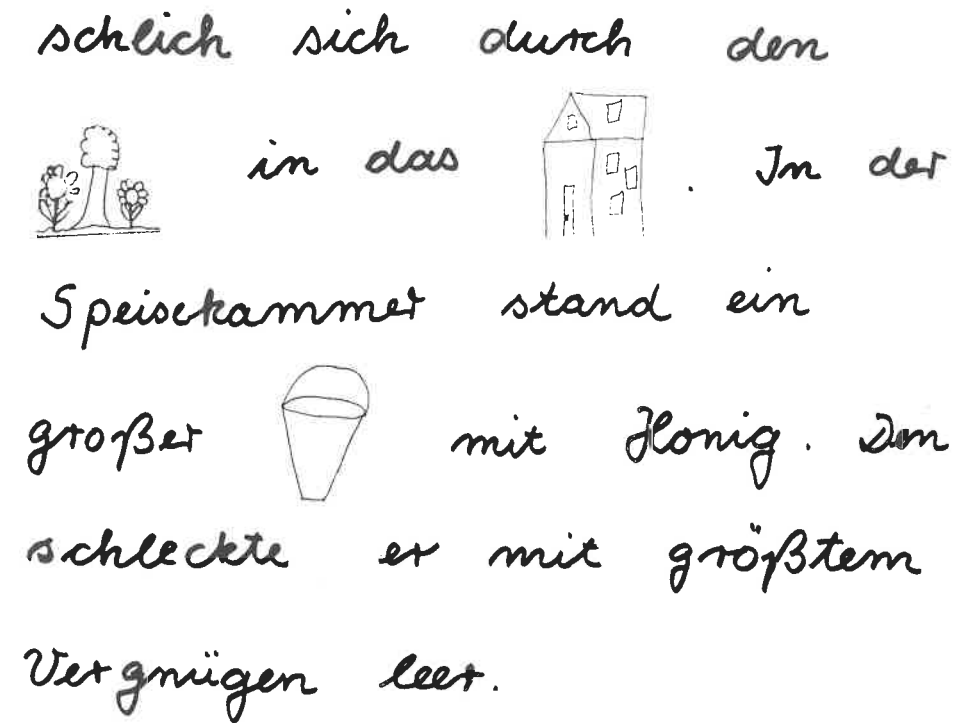 schlich sich durch den
in das . In der
Speisekammer stand ein
großer mit Honig. Den
schleckte er mit größtem
Vergnügen leer.